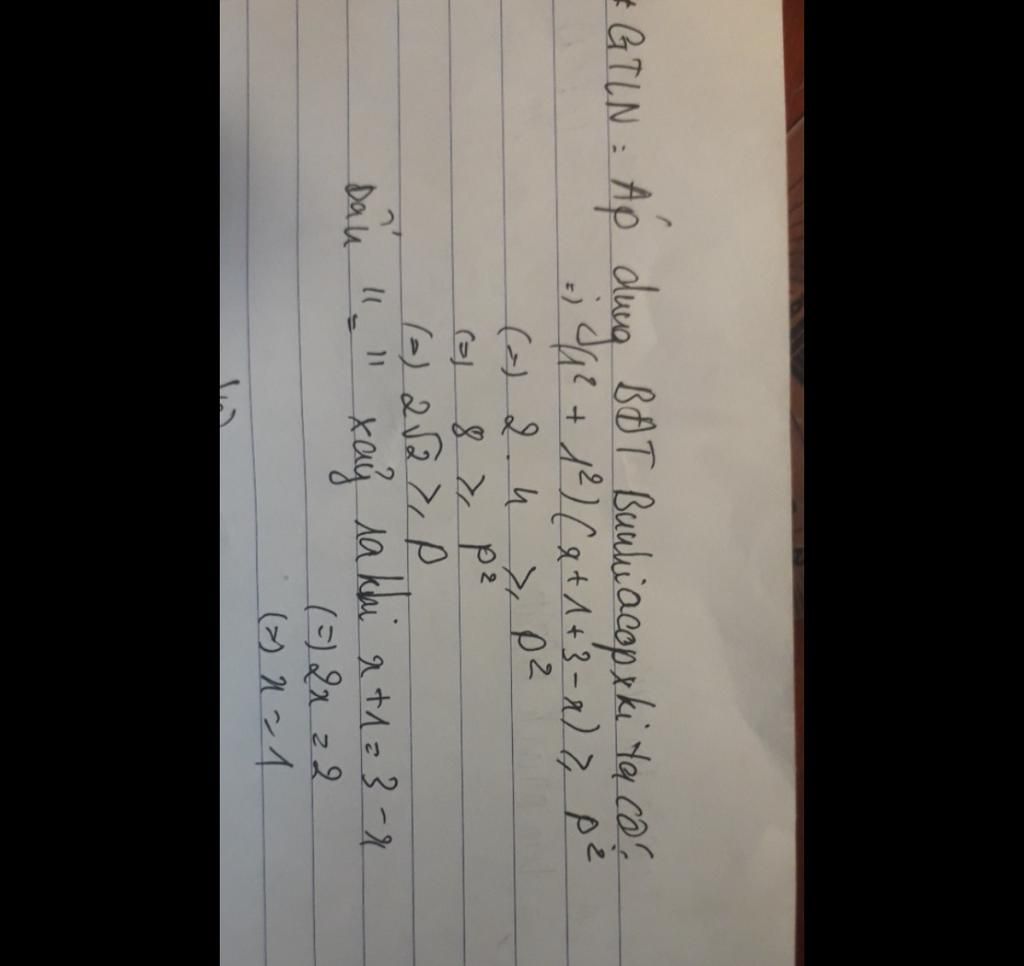 * GTLN: Áp dụng BĐT Bunhiacopxki ta có:
=> (1² + 1²)(x+1+3-x) ≥ P²
(=) 2 . 4 ≥ P²
(=) 8 ≥ P²
(=) 2√2 ≥ P
Dấu "=" xảy ra khi x+1 = 3-x
(=) 2x = 2
(=) x = 1